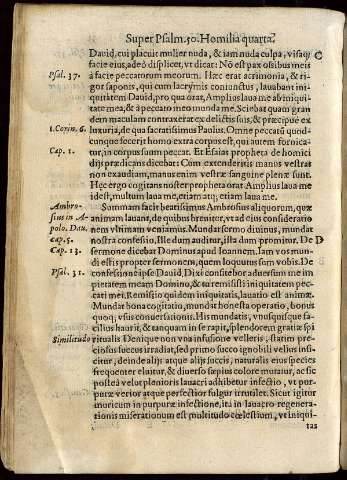 Super Psalm. 50. Homilia quarta.
Dauid, cui placuit mulier nuda, & iam nuda culpa, visaq; C
facie eius, adeò displicet, vt dicat: Nõ est pax ossibus meis
Psal. 37. à facie peccatorum meorum. Hæc erat acrimonia, & ri-
gor saponis, qui cum lacrymis coniunctus, lauabant ini-
quitatem Dauid, pro qua orat, Amplius laua me ab iniqui-
tate mea, & à peccato meo munda me. Sciebat quam gran-
dem maculam contraxerat ex delictis suis, & præcipuè ex
1. Corin. 6. luxuria, de qua sacratissimus Paulus. Omne peccatũ quod-
cunque fecerit homo extra corpus est, qui autem fornica-
Cap. 1. tur, in corpus suum peccat. Et Esaias propheta de homici
dijs prædicans dicebat: Cum extenderitis manus vestras
non exaudiam, manus enim vestræ sanguine plenæ sunt.
Hęc ergo cogitans noster propheta orat, Amplius laua me
idest, multum laua me, etiam atq; etiam laua me.
Ambro- Summam facit beatissimus Ambrosius aliquorum, quæ
sius in A- animam lauant, de quibus breniter, vt ad eius consideratio
polo. Dau. nem vltimam veniamus. Mundat sermo diuinus, mundat
cap. 5. nostra confessio, Ille dum auditur, ista dum promitur. De D
Cap. 13. sermone dicebat Dominus apud Ioannem, Iam vos mun-
di estis propter sermonem, quem loquutus sum vobis. De
Psal. 31. confessione ipse Dauid, Dixi confitebor aduersum me im
pietatem meam Domino, & tu remisisti iniquitatem pec-
cati mei. Remissio quidem iniquitatis, lauatio est animæ.
Mundat bona cogitatio, mundat honesta operatio, bonus
quoq; vsus conuersationis. His mundatis, vnusquisque fa-
cilius haurit, & tanquam in se rapit, splendorem gratiæ spi
Similitudo ritualis. Denique non vna infusione velleris, statim pre-
ciosus fuccus irradiat, sed primo succo ignobili vellus infi-
citur, deinde alijs atque alijs succis, naturalis eius species
frequenter eluitur, & diuerso sæpius colore mutatur, ac sic
posteà velut plenioris lauacri adhibetur infectio, vt pur-
puræ verior atque perfectior fulgur irrutilet. Sicut igitur
muricum in purpuræ infectione, ita in lauacro regenera-
tionis miserationum est multitudo cœlestium, vt iniqui-
tas